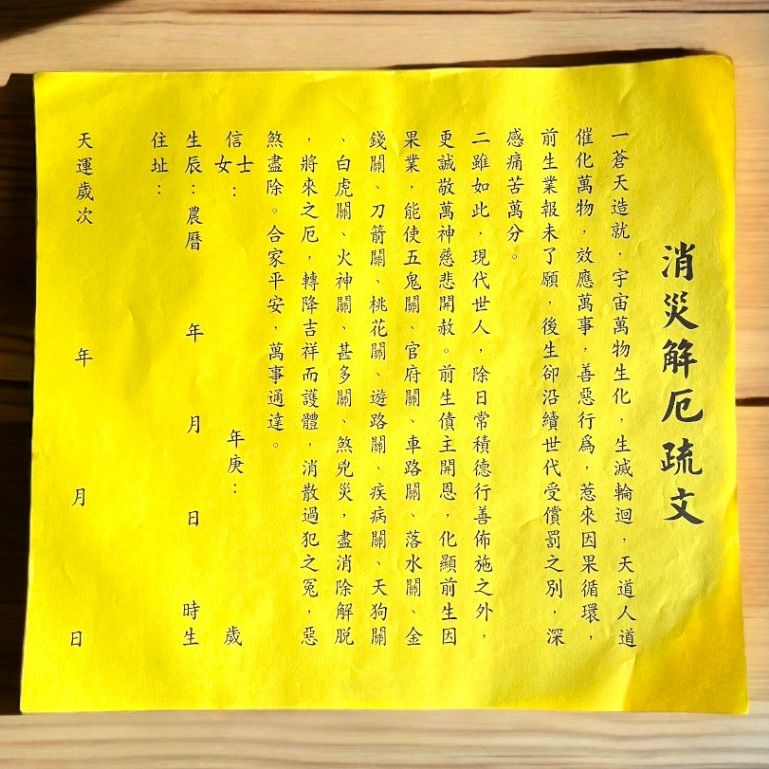 消災解厄疏文
一蒼天造就，宇宙萬物生化，生滅輪迴，天道人道
催化萬物，效應萬事，善惡行為，惹來因果循環，
前生業報未了願，後生卻沿續世代受償罰之別，深
感痛苦萬分。
二雖如此，現代世人，除日常積德行善佈施之外，
更誠敬萬神慈悲開赦。前生債主開恩，化顯前生因
果業，能使五鬼關、官府關、車路關、落水關、金
錢關、刀箭關、桃花關、遊路關、疾病關、天狗關
、白虎關、火神關、甚多關、煞兇災，盡消除解脫
，將來之厄，轉降吉祥而護體，消散過犯之冤，惡
煞盡除。合家平安，萬事通達。
信士女： 年庚： 歲
生辰：農曆 年 月 日 時生
住址：
天運歲次 年 月 日